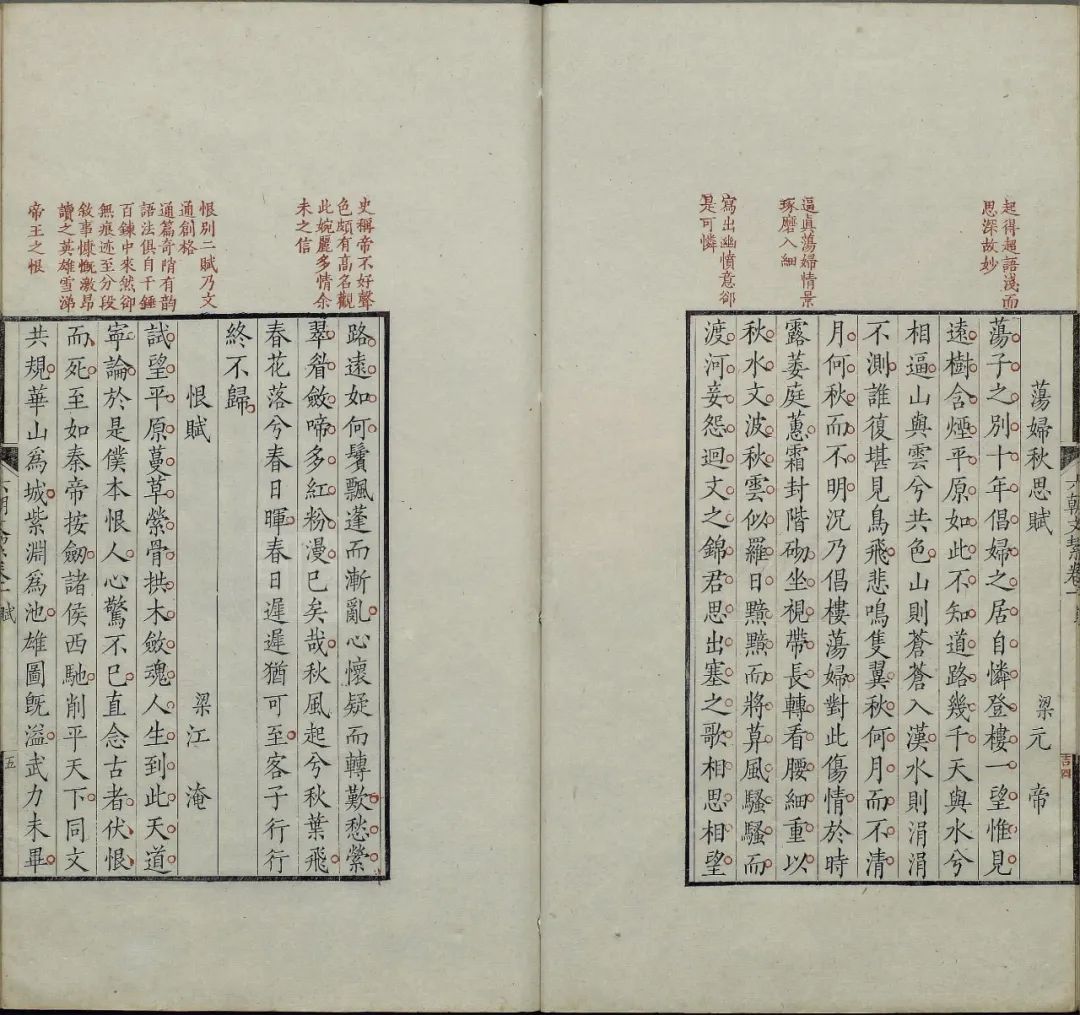 起得超語淺而
思深故妙
逼真蕩婦情景
琢磨入細
寫出幽憤意郤
是可憐
蕩婦秋思賦
梁元帝
蕩子之別十年倡婦之居自憐登樓一望惟見
遠樹含煙平原如此不知道路幾千天與水兮
相逼山與雲兮共色山則蒼蒼入漢水則涓涓
不測誰復堪見鳥飛悲鳴隻翼秋何月而不清
月何秋而不明況乃倡樓蕩婦對此傷情於時
露萎庭蕙霜封階砌坐視帶長轉看腰細重以
秋水文波秋雲似羅日黯黯而將暮風騷騷而
渡河妾怨迴文之錦君思出塞之歌相思相望
史稱帝不好聲
色頗有高名觀
此婉麗多情余
未之信
恨別二賦乃文
通創格
通篇奇隋有韵
語法俱自千錘
百鍊中來然郤
無痕迹至分段
敘事慷慨激昂
讀之英雄雪涕
帝王之恨
路遠如何鬢飄蓬而漸亂心懷疑而轉歎愁縈
翠眉斂啼多紅粉漫已矣哉秋風起兮秋葉飛
春花落兮春日暉春日遲遲猶可至客子行行
終不歸
恨賦
梁江淹
試望平原蔓草縈骨拱木斂魂人生到此天道
寧論於是僕本恨人心驚不已直念古者伏恨
而死至如秦帝按劒諸侯西馳削平天下同文
共規華山為城紫淵為池雄圖既溢武力未畢
五